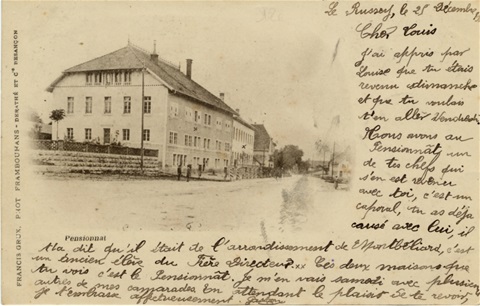 Le Russey, le 25 Décembre
Cher Louis
J'ai appris par
Louise que tu étais
revenu dimanche
et que tu voulais
t'en aller Vendredi
Nous avons au
Pensionnat, un
de tes chefs qui
s'en est revenu
avec toi, c'est un
caporal, tu as déjà
causé avec lui, il
Pensionnat
m'a dit qu'il était de l'arrondissement de Montbéliard, c'est
un ancien élève du Frère Directeur. xx Ces deux maisons que
tu vois c'est le Pensionnat, Je m'en vais samedi avec plusieurs
autres de mes camarades En attendant le plaisir de te revoir,
Je t'embrasse affectueusement. Gaston
FRANCIS GRUX, PHOT FRAMBOUHANS - BERTHÉ ET Cie BESANÇON